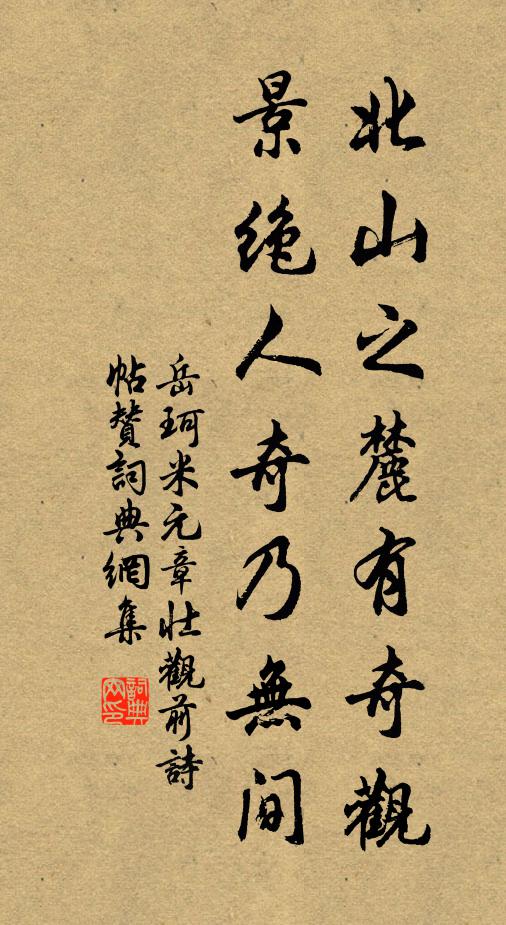 北山之麓有奇觀
景絶人奇乃無间
岳珂米元章壮觀前詩
帖贊詞典網集
詞典网印